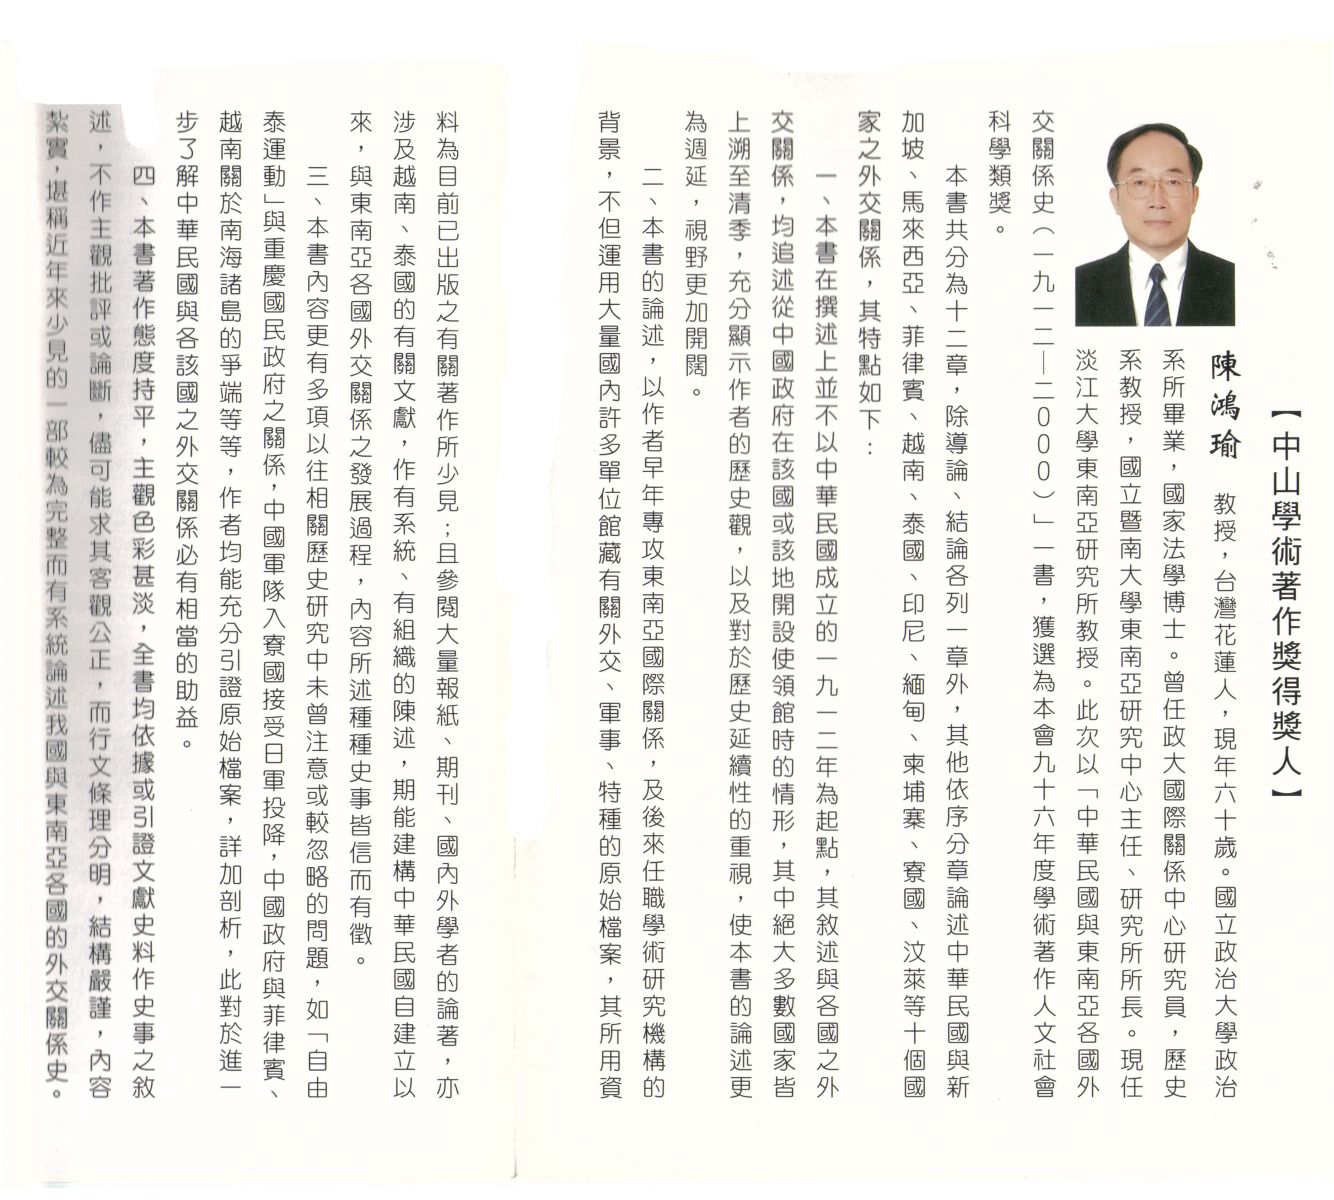 【中山學術著作獎得獎人】
陳鴻瑜　教授，台灣花蓮人，現年六十歲。國立政治大學政治
系所畢業，國家法學博士。曾任政大國際關係中心研究員，歷史
系教授，國立暨南大學東南亞研究中心主任、研究所所長。現任
淡江大學東南亞研究所教授。此次以「中華民國與東南亞各國外
交關係史（一九一二—二０００）」一書，獲選為本會九十六年度學術著作人文社會
科學類獎。
本書共分為十二章，除導論、結論各列一章外，其他依序分章論述中華民國與新
加坡、馬來西亞、菲律賓、越南、泰國、印尼、緬甸、柬埔寨、寮國、汶萊等十個國
家之外交關係，其特點如下：
一、本書在撰述上並不以中華民國成立的一九一二年為起點，其敘述與各國之外
交關係，均追述從中國政府在該國或該地開設使領館時的情形，其中絕大多數國家皆
上溯至清季，充分顯示作者的歷史觀，以及對於歷史延續性的重視，使本書的論述更
為週延，視野更加開闊。
二、本書的論述，以作者早年專攻東南亞國際關係，及後來任職學術研究機構的
背景，不但運用大量國內許多單位館藏有關外交、軍事、特種的原始檔案，其所用資
料為目前已出版之有關著作所少見；且參閱大量報紙、期刊、國內外學者的論著，亦
涉及越南、泰國的有關文獻，作有系統、有組織的陳述，期能建構中華民國自建立以
來，與東南亞各國外交關係之發展過程，內容所述種種史事皆信而有徵。
三、本書內容更有多項以往相關歷史研究中未曾注意或較忽略的問題，如「自由
泰運動」與重慶國民政府之關係，中國軍隊入寮國接受日軍投降，中國政府與菲律賓、
越南關於南海諸島的爭端等等，作者均能充分引證原始檔案，詳加剖析，此對於進一
步了解中華民國與各該國之外交關係必有相當的助益。
四、本書著作態度持平，主觀色彩甚淡，全書均依據或引證文獻史料作史事之敘
述，不作主觀批評或論斷，儘可能求其客觀公正，而行文條理分明，結構嚴謹，內容
紮實，堪稱近年來少見的一部較為完整而有系統論述我國與東南亞各國的外交關係史。